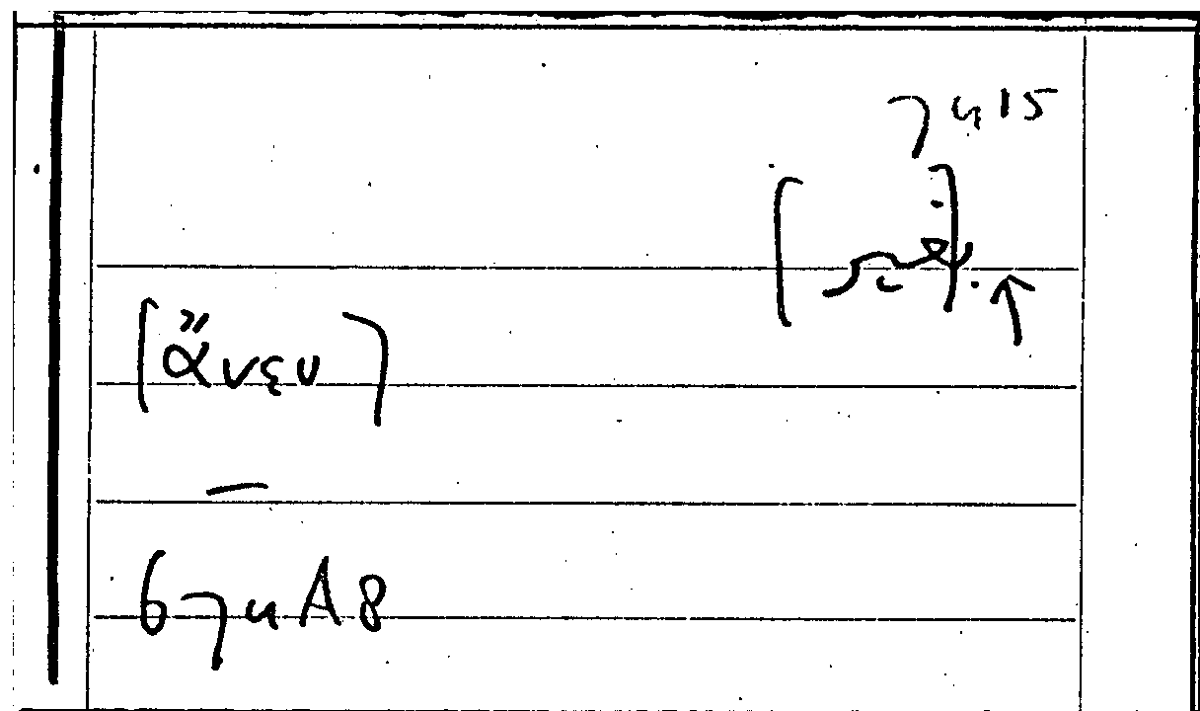 74 15
[ἄνευ]
—
674 A 8